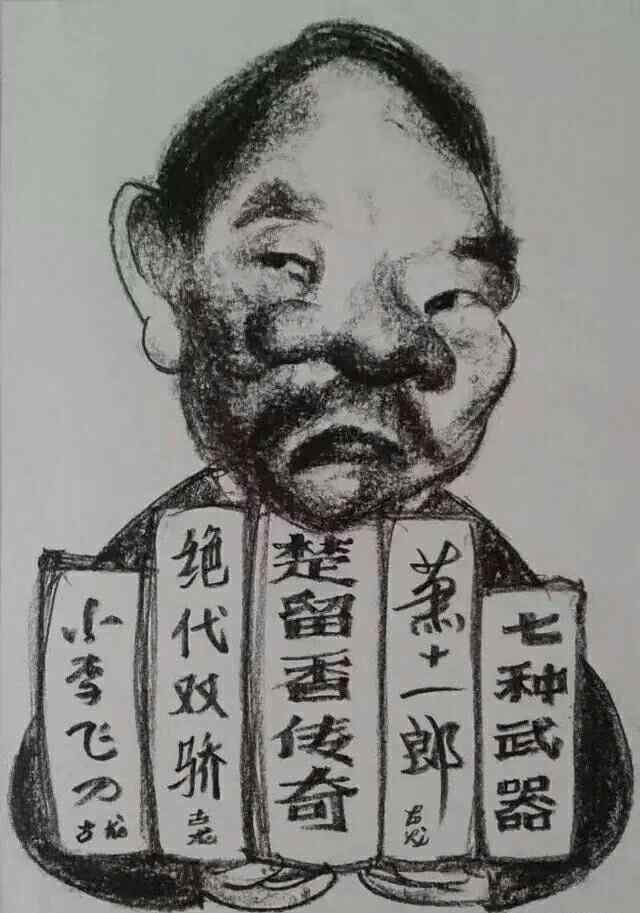 小李飞刀
古龙
绝代双骄
古龙
楚留香传奇
萧十一郎
古龙
七种武器